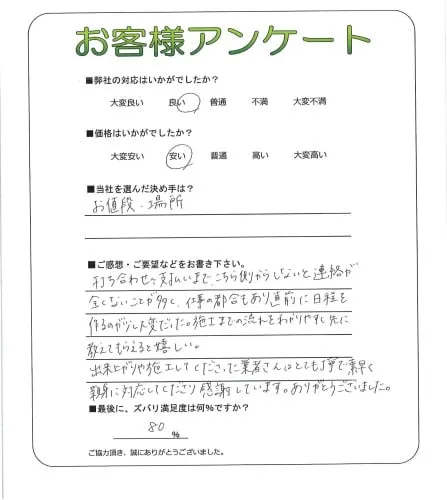 お客様アンケート
■弊社の対応はいかがでしたか?
大変良い 良い 普通 不満 大変不満
■価格はいかがでしたか?
大変安い 安い 普通 高い 大変高い
■当社を選んだ決め手は?
お値段、場所
■ご感想・ご要望などをお書き下さい。
打ち合わせや支払いまで、こちら側からしないと連絡が
全くないことが多く、仕事の都合もあり直前に日程を
作るのが少し大変だった。施工までの流れをわかりやすく先に
教えてもらえると嬉しい。
出来上がりや施工してくださった業者さんはとても丁寧で素早く
親身に対応してくださり感謝しています。ありがとうございました。
■最後に、ズバリ満足度は何%ですか?
80 %
ご協力頂き、誠にありがとうございました。